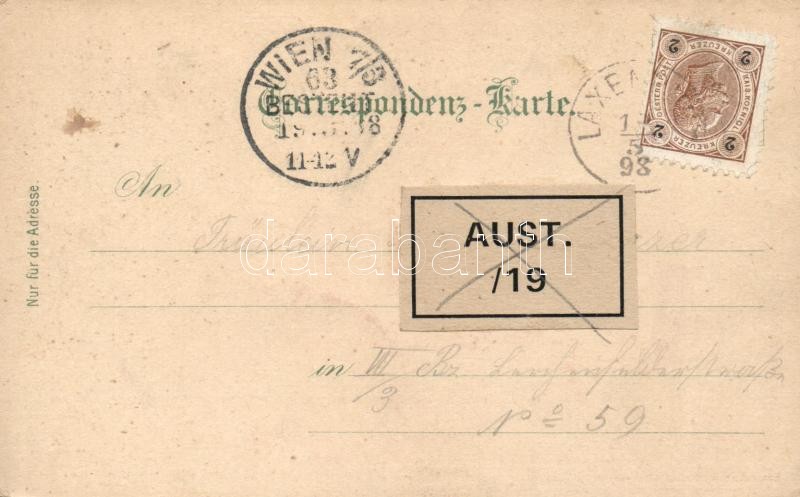 WIEN 7/3
63
BESTELLT
19.5.98
11-12 V
LAXE
5
98
2 KREUZER 2
OESTERR. POST
KAIS. KOENIGL.
2 KREUZER 2
Correspondenz-Karte.
An
Fräulein
AUST.
/19
darabanth
Nur für die Adresse.
in VII Bz Lerchenfelderstraße
/3
No 59